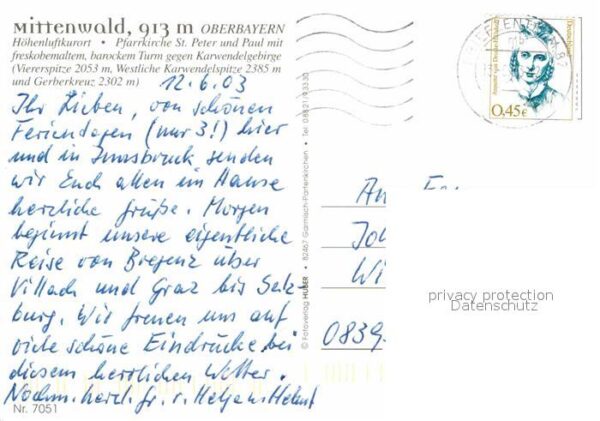 Mittenwald, 913 m OBERBAYERN
Höhenluftkurort • Pfarrkirche St. Peter und Paul mit
freskobemaltem, barockem Turm gegen Karwendelgebirge
(Viererspitze 2053 m, Westliche Karwendelspitze 2385 m
und Gerberkreuz 2302 m)
12.6.03
Ihr Lieben, von schönen
Ferientagen (nur 3!) hier
und in Innsbruck senden
wir Euch allen im Hause
herzliche Grüße. Morgen
beginnt unsere eigentliche
Reise von Bregenz über
Villach und Graz bis Salz-
burg. Wir freuen uns auf
viele schöne Eindrücke bei
diesem herrlichen Wetter.
Nochm. herzl. Gr. v. Helga u. Helmut
Nr. 7051
© Fotoverlag HUBER • 82467 Garmisch-Partenkirchen • Tel. 08821/
Deutschland
0,45€
An
Joh
Wi
0839
privacy protection
Datenschutz